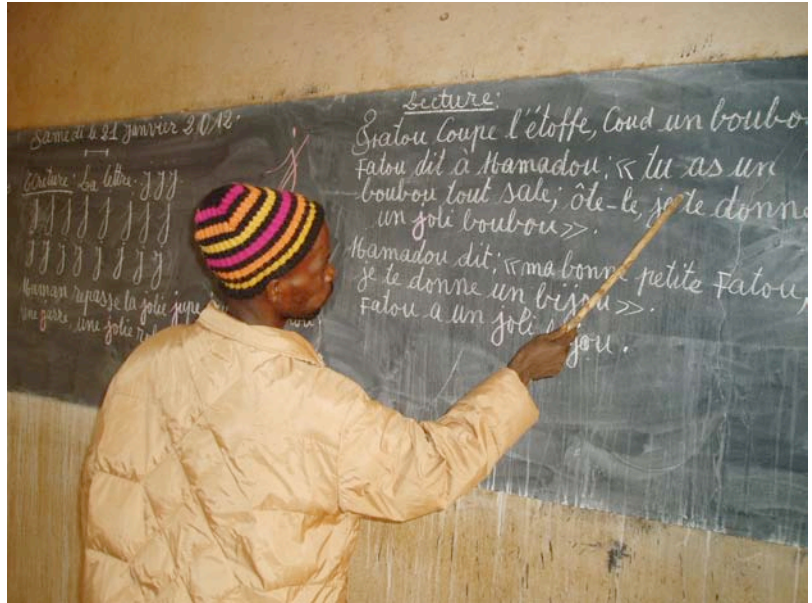 Samedi le 21 Janvier 2012.
Ecriture: La lettre. j j j
j j j j j j j j
j j j j j j j j
Maman repasse la jolie jupe
une jolie
j
Lecture:
Fatou Coupe l'étoffe, Coud un boubo
Fatou dit à Mamadou: « tu as un
boubou tout sale; ôte-le, je te donne
un joli boubou ».
Mamadou dit: « ma bonne petite Fatou,
je te donne un bijou ».
Fatou a un joli bijou.